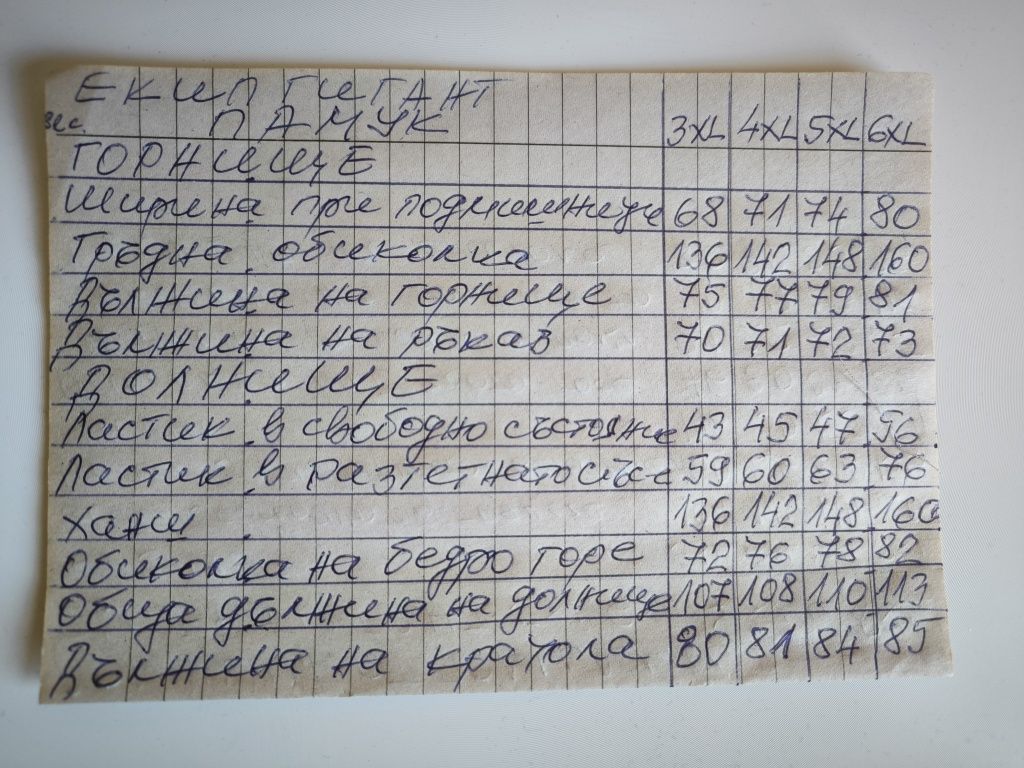 ЕКИП ГИГАНТ
ПАМУК 3XL 4XL 5XL 6XL
ГОРНИЩЕ
Ширина при подмишниците 68 71 74 80
Гръдна обиколка 136 142 148 160
Дължина на горнище 75 77 79 81
Дължина на ръкав 70 71 72 73
ДОЛНИЩЕ
Ластик в свободно състояние 43 45 47 56
Ластик в разтегнато със 59 60 63 76
Ханш 136 142 148 160
Обиколка на бедро горе 72 76 78 82
Обща дължина на долнище 107 108 110 113
Дължина на крачола 80 81 84 85